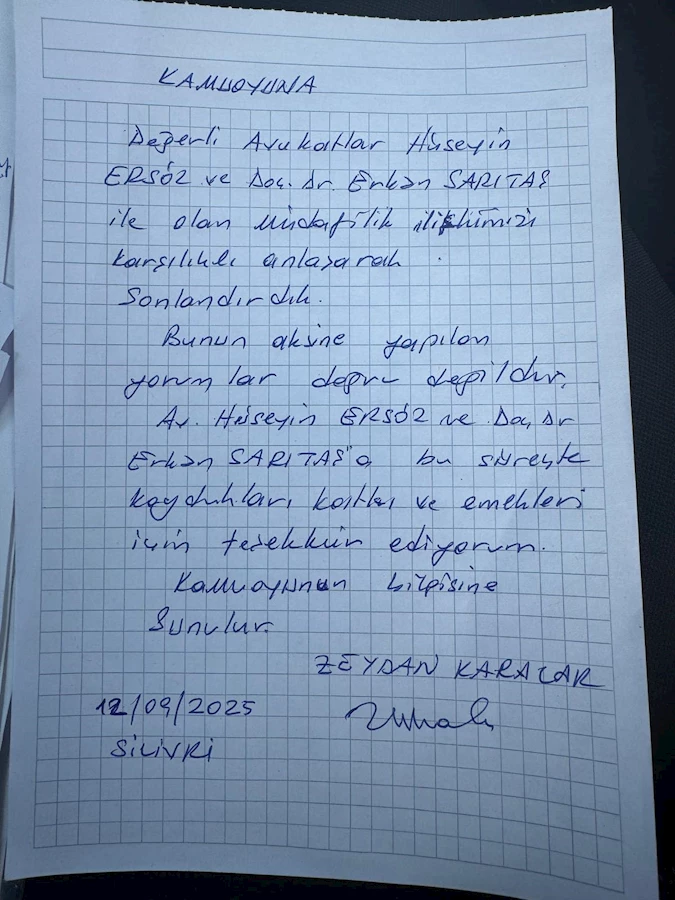 KAMUOYUNA
Değerli Avukatlar Hüseyin
ERSÖZ ve Doç. Dr. Erkan SARITAŞ
ile olan müdafilik ilişkimizi
karşılıklı anlaşarak
Sonlandırdık.
Bunun aksine yapılan
yorumlar doğru değildir.
Av. Hüseyin ERSÖZ ve Doç. Dr
Erkan SARITAŞ'a bu süreçte
koydukları katkı ve emekleri
için teşekkür ediyorum.
Kamuoyunun bilgisine
Sunulur.
ZEYDAN KARALAR
12/09/2025
SİLİVRİ